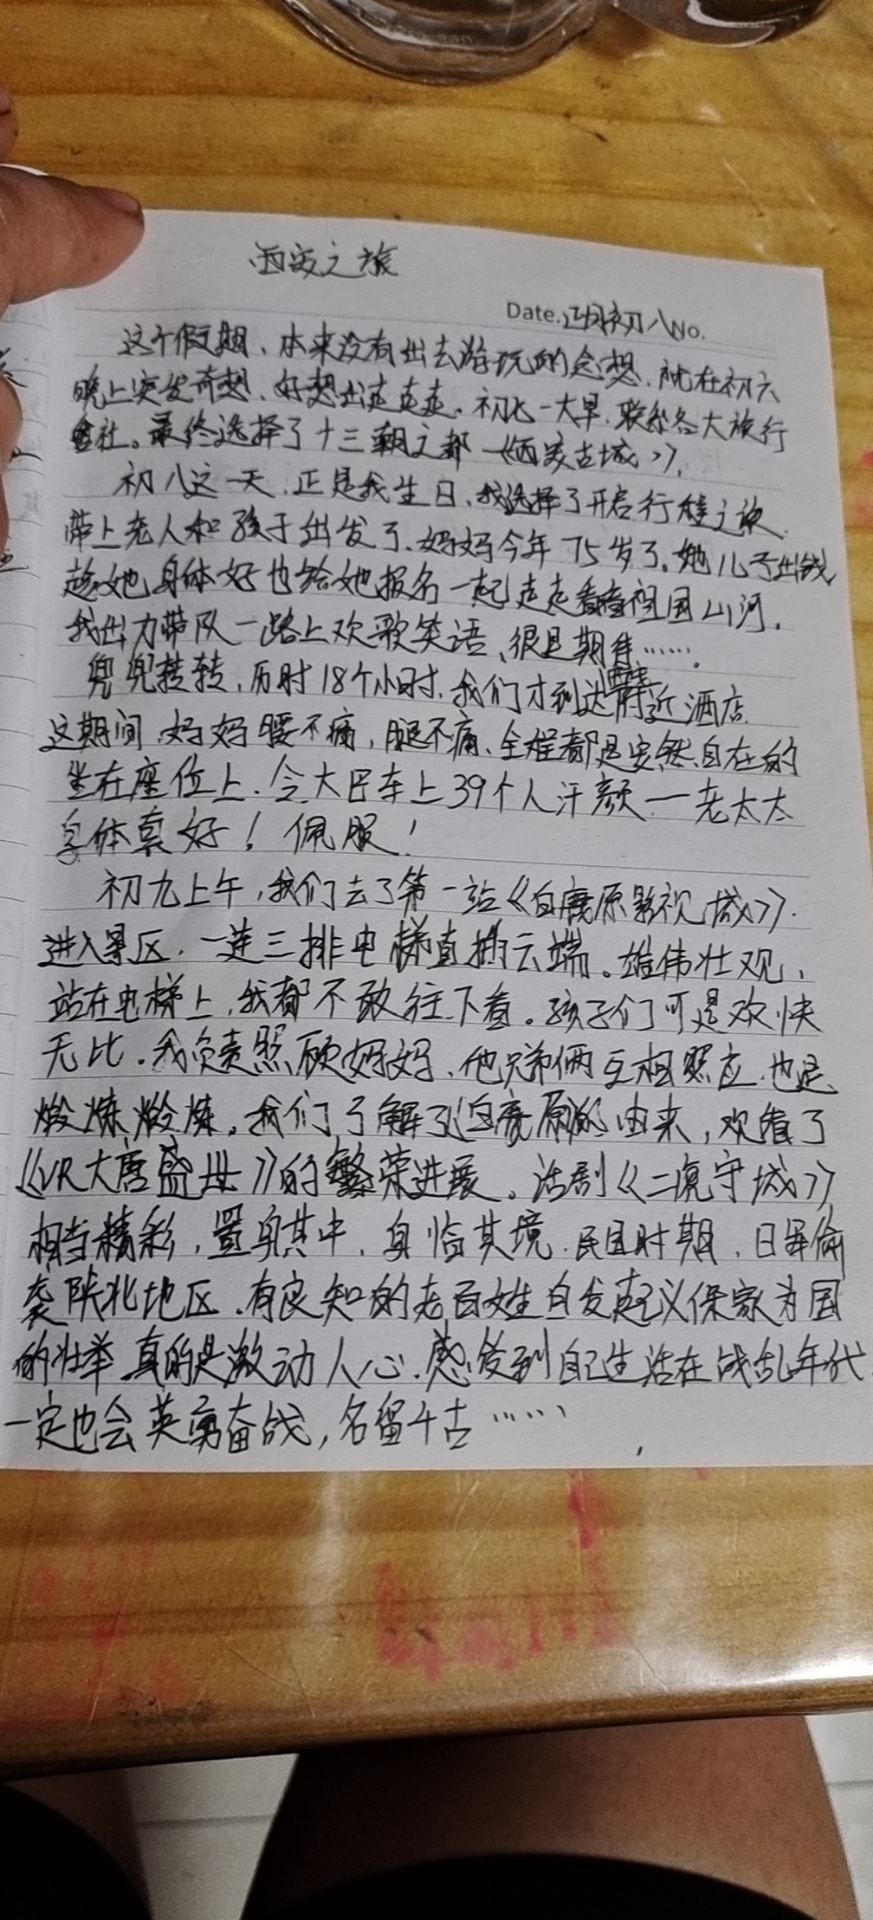 西安之旅
Date.正月初八No.
这个假期、本来没有出去游玩的念想、就在初六
晚上突发奇想、好想出走走走。初七一大早、联系各大旅行
社。最终选择了十三朝之都—《西安古城》。
初八这一天、正是我生日、我选择了开启行程之旅
带上老人和孩子出发了、妈妈今年75岁了。她儿子出钱
趁她身体好也给她报名一起走走看看祖国山河。
我出力带队一路上欢歌笑语、很是期待……
兜兜转转、历时18个小时、我们才到达西安附近酒店
这期间、妈妈腰不痛，腿不痛、全程都是安然自在的
坐在座位上、令大巴车上39个人汗颜—老太太
身体真好！佩服！
初九上午，我们去了第一站《白鹿原影视城》.
进入景区、一连三排电梯直插云端。雄伟壮观、
站在电梯上，我都不敢往下看。孩子们可是欢快
无比。我负责照顾妈妈、他兄弟俩互相照应、也是
煅炼煅炼。我们了解了《白鹿原》的由来，观看了
《VR大唐盛世》的繁荣进展。话剧《二虎守城》
相当精彩，置身其中、身临其境、民国时期、日军偷
袭陕北地区、有良知的老百姓自发起义保家为国
的壮举真的是激动人心、感发到自己生活在战乱年代
一定也会英勇奋战，名留千古……